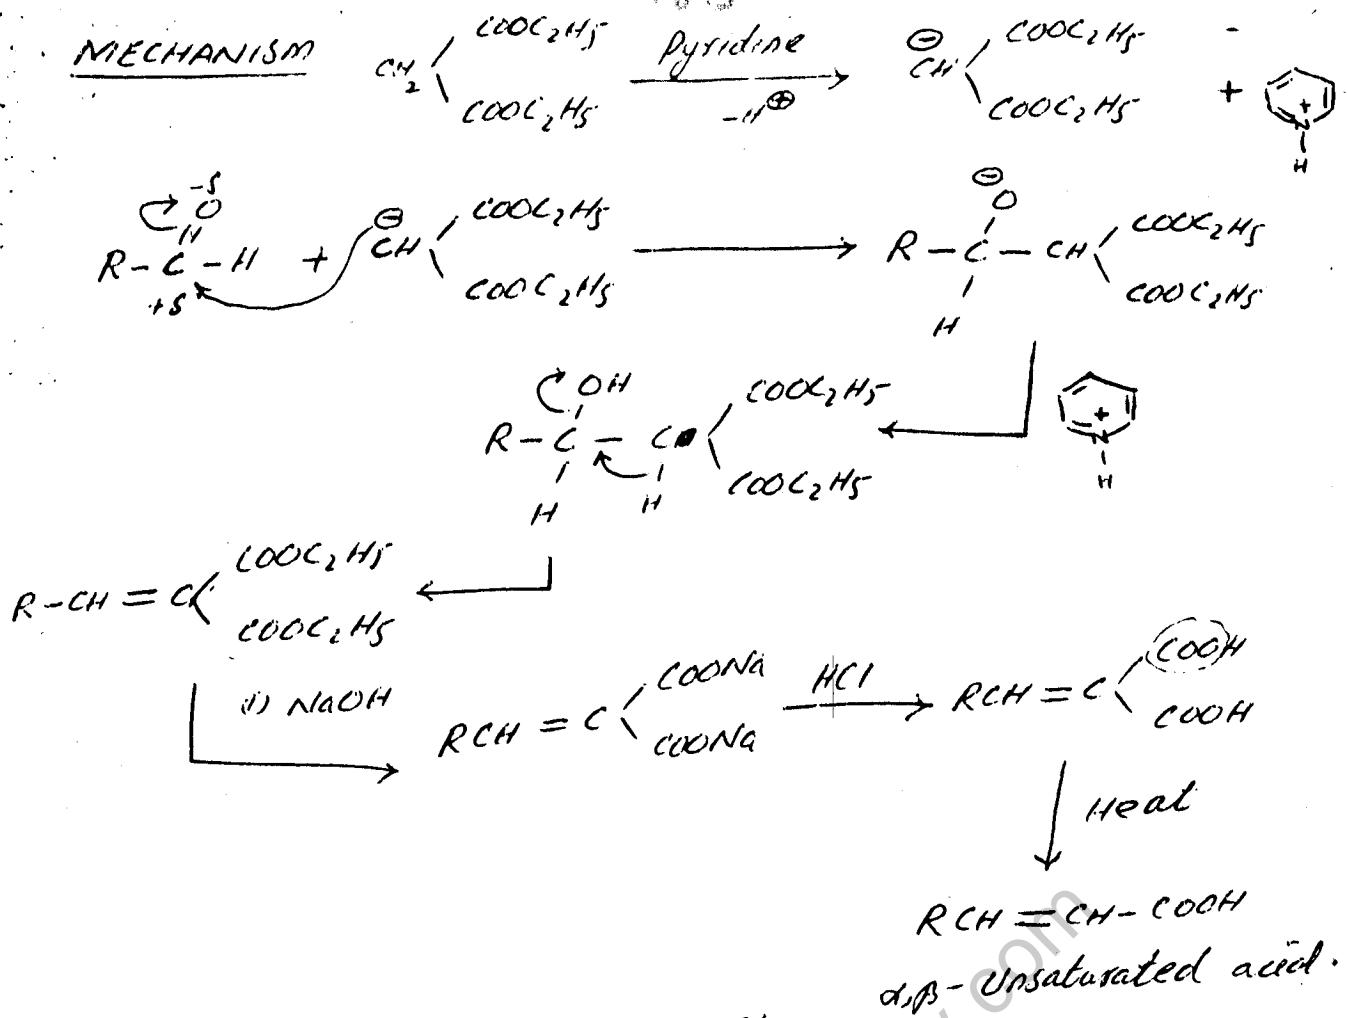 MECHANISM CH2 COOC2H5 COOC2H5 Pyridine -H⊕ ⊖ CH COOC2H5 COOC2H5 + N + H
-δ O R-C-H +δ + ⊖ CH COOC2H5 COOC2H5 ⊖ O R-C-CH H COOC2H5 COOC2H5
OH R-C-C H H COOC2H5 COOC2H5 + N H
R-CH=C COOC2H5 COOC2H5
(i) NaOH RCH=C COONa COONa HCl RCH=C COOH COOH
Heat
RCH=CH-COOH
α,β-Unsaturated acid.
com